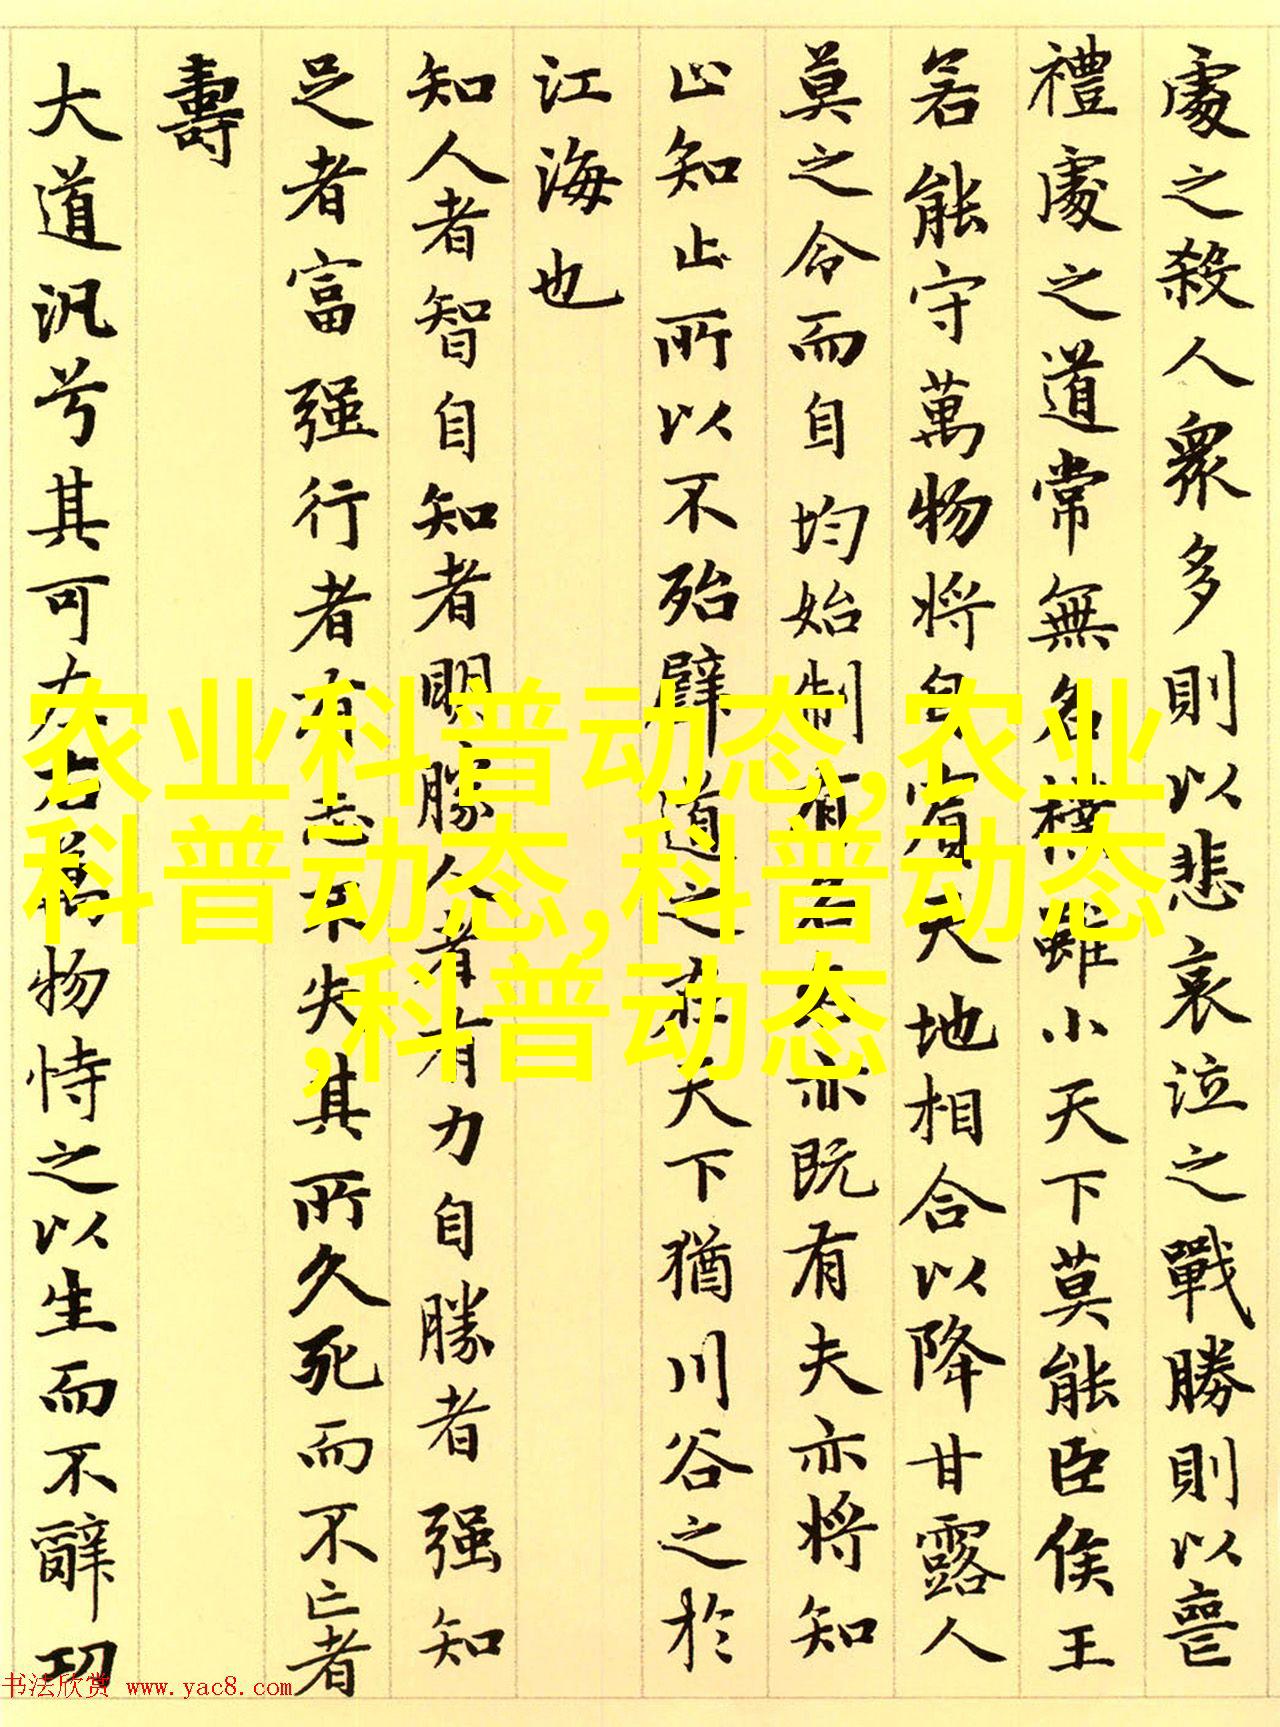 處之殺人衆多則以悲哀泣之戰勝則以喪
禮處之道常無名樸雖小天下莫能臣侯王
若能守萬物將自賓天地相合以降甘露人
莫之令而自均始制有名名亦既有夫亦將知
止知止所以不殆譬道之在天下猶川谷之於
江海也
知人者智自知者明勝人者有力自勝者强知
足者富强行者有志不失其所久死而不亡者
壽
大道汎兮其可左右萬物恃之以生而不辭功
农业科普动态,农业
科普动态,科普动态
,科普动态
书法欣赏 www.yac8.com